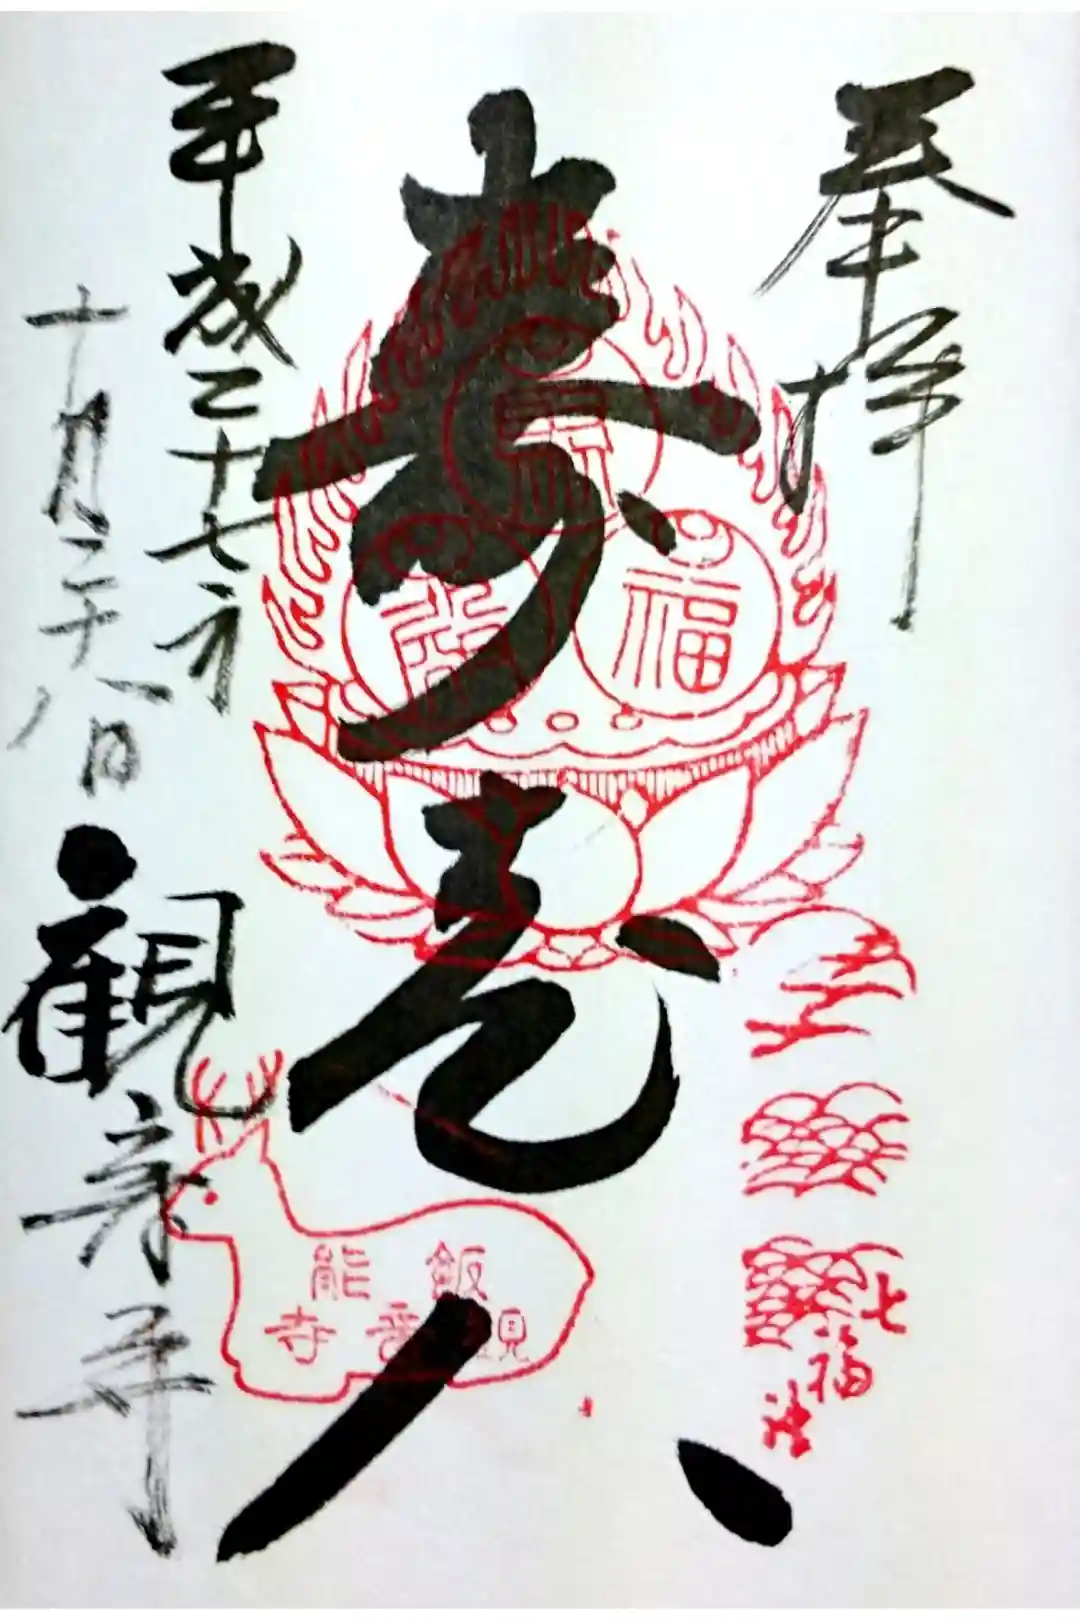 奉拝
寿老人
平成二十七年
十月二十八日
観音寺
福
七福神
飯能
観音寺